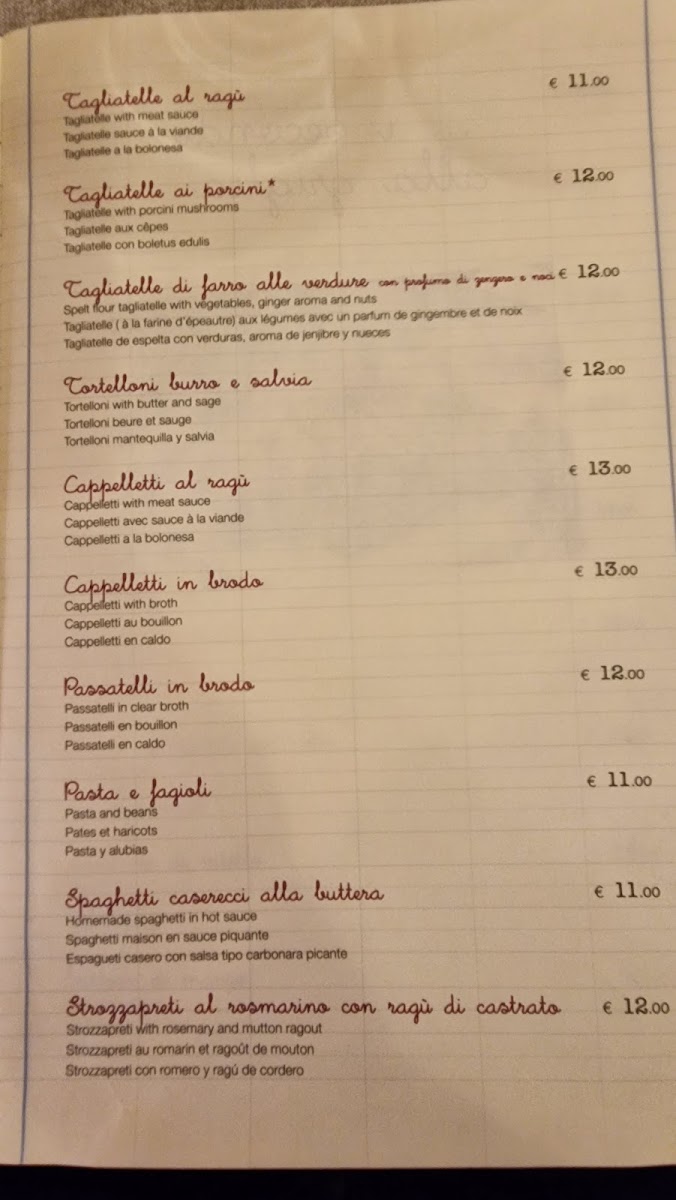 Tagliatelle al ragù € 11.00
Tagliatelle with meat sauce
Tagliatelle sauce à la viande
Tagliatelle a la bolonesa
Tagliatelle ai porcini* € 12.00
Tagliatelle with porcini mushrooms
Tagliatelle aux cêpes
Tagliatelle con boletus edulis
Tagliatelle di farro alle verdure con profumo di zenzero e noci € 12.00
Spelt flour tagliatelle with vegetables, ginger aroma and nuts
Tagliatelle ( à la farine d'épeautre) aux légumes avec un parfum de gingembre et de noix
Tagliatelle de espelta con verduras, aroma de jenjibre y nueces
Tortelloni burro e salvia € 12.00
Tortelloni with butter and sage
Tortelloni beure et sauge
Tortelloni mantequilla y salvia
Cappelletti al ragù € 13.00
Cappelletti with meat sauce
Cappelletti avec sauce à la viande
Cappelletti a la bolonesa
Cappelletti in brodo € 13.00
Cappelletti with broth
Cappelletti au bouillon
Cappelletti en caldo
Passatelli in brodo € 12.00
Passatelli in clear broth
Passatelli en bouillon
Passatelli en caldo
Pasta e fagioli € 11.00
Pasta and beans
Pates et haricots
Pasta y alubias
Spaghetti caserecci alla buttera € 11.00
Homemade spaghetti in hot sauce
Spaghetti maison en sauce piquante
Espagueti casero con salsa tipo carbonara picante
Strozzapreti al rosmarino con ragù di castrato € 12.00
Strozzapreti with rosemary and mutton ragout
Strozzapreti au romarin et ragoût de mouton
Strozzapreti con romero y ragú de cordero